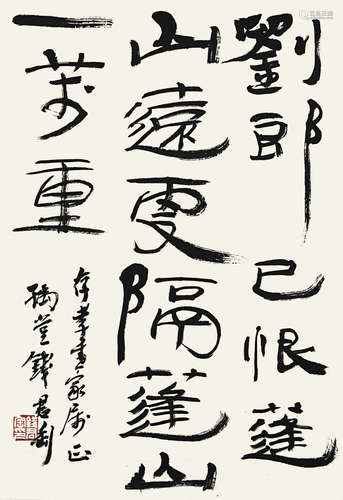 劉郎已恨蓬
山遠更隔蓬山
一萬重
書家屬正
豫堂錢君匋